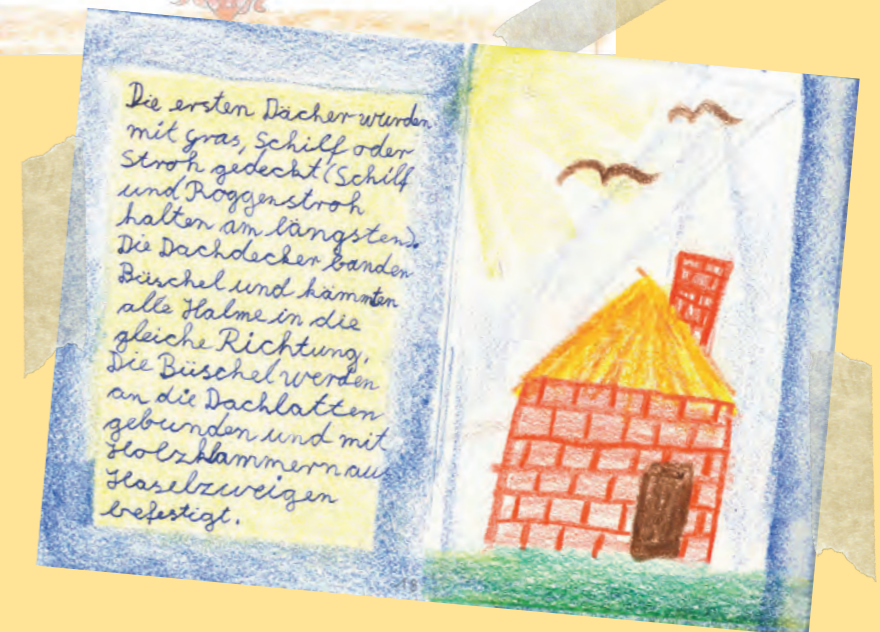 Die ersten Dächer wurden
mit gras, Schilf oder
Stroh gedeckt (Schilf
und Roggenstroh
halten am längsten).
Die Dachdecker banden
Büschel und kämmten
alle Halme in die
gleiche Richtung.
Die Büschel werden
an die Dachlatten
gebunden und mit
Holzklammern aus
Haselzweigen
befestigt.